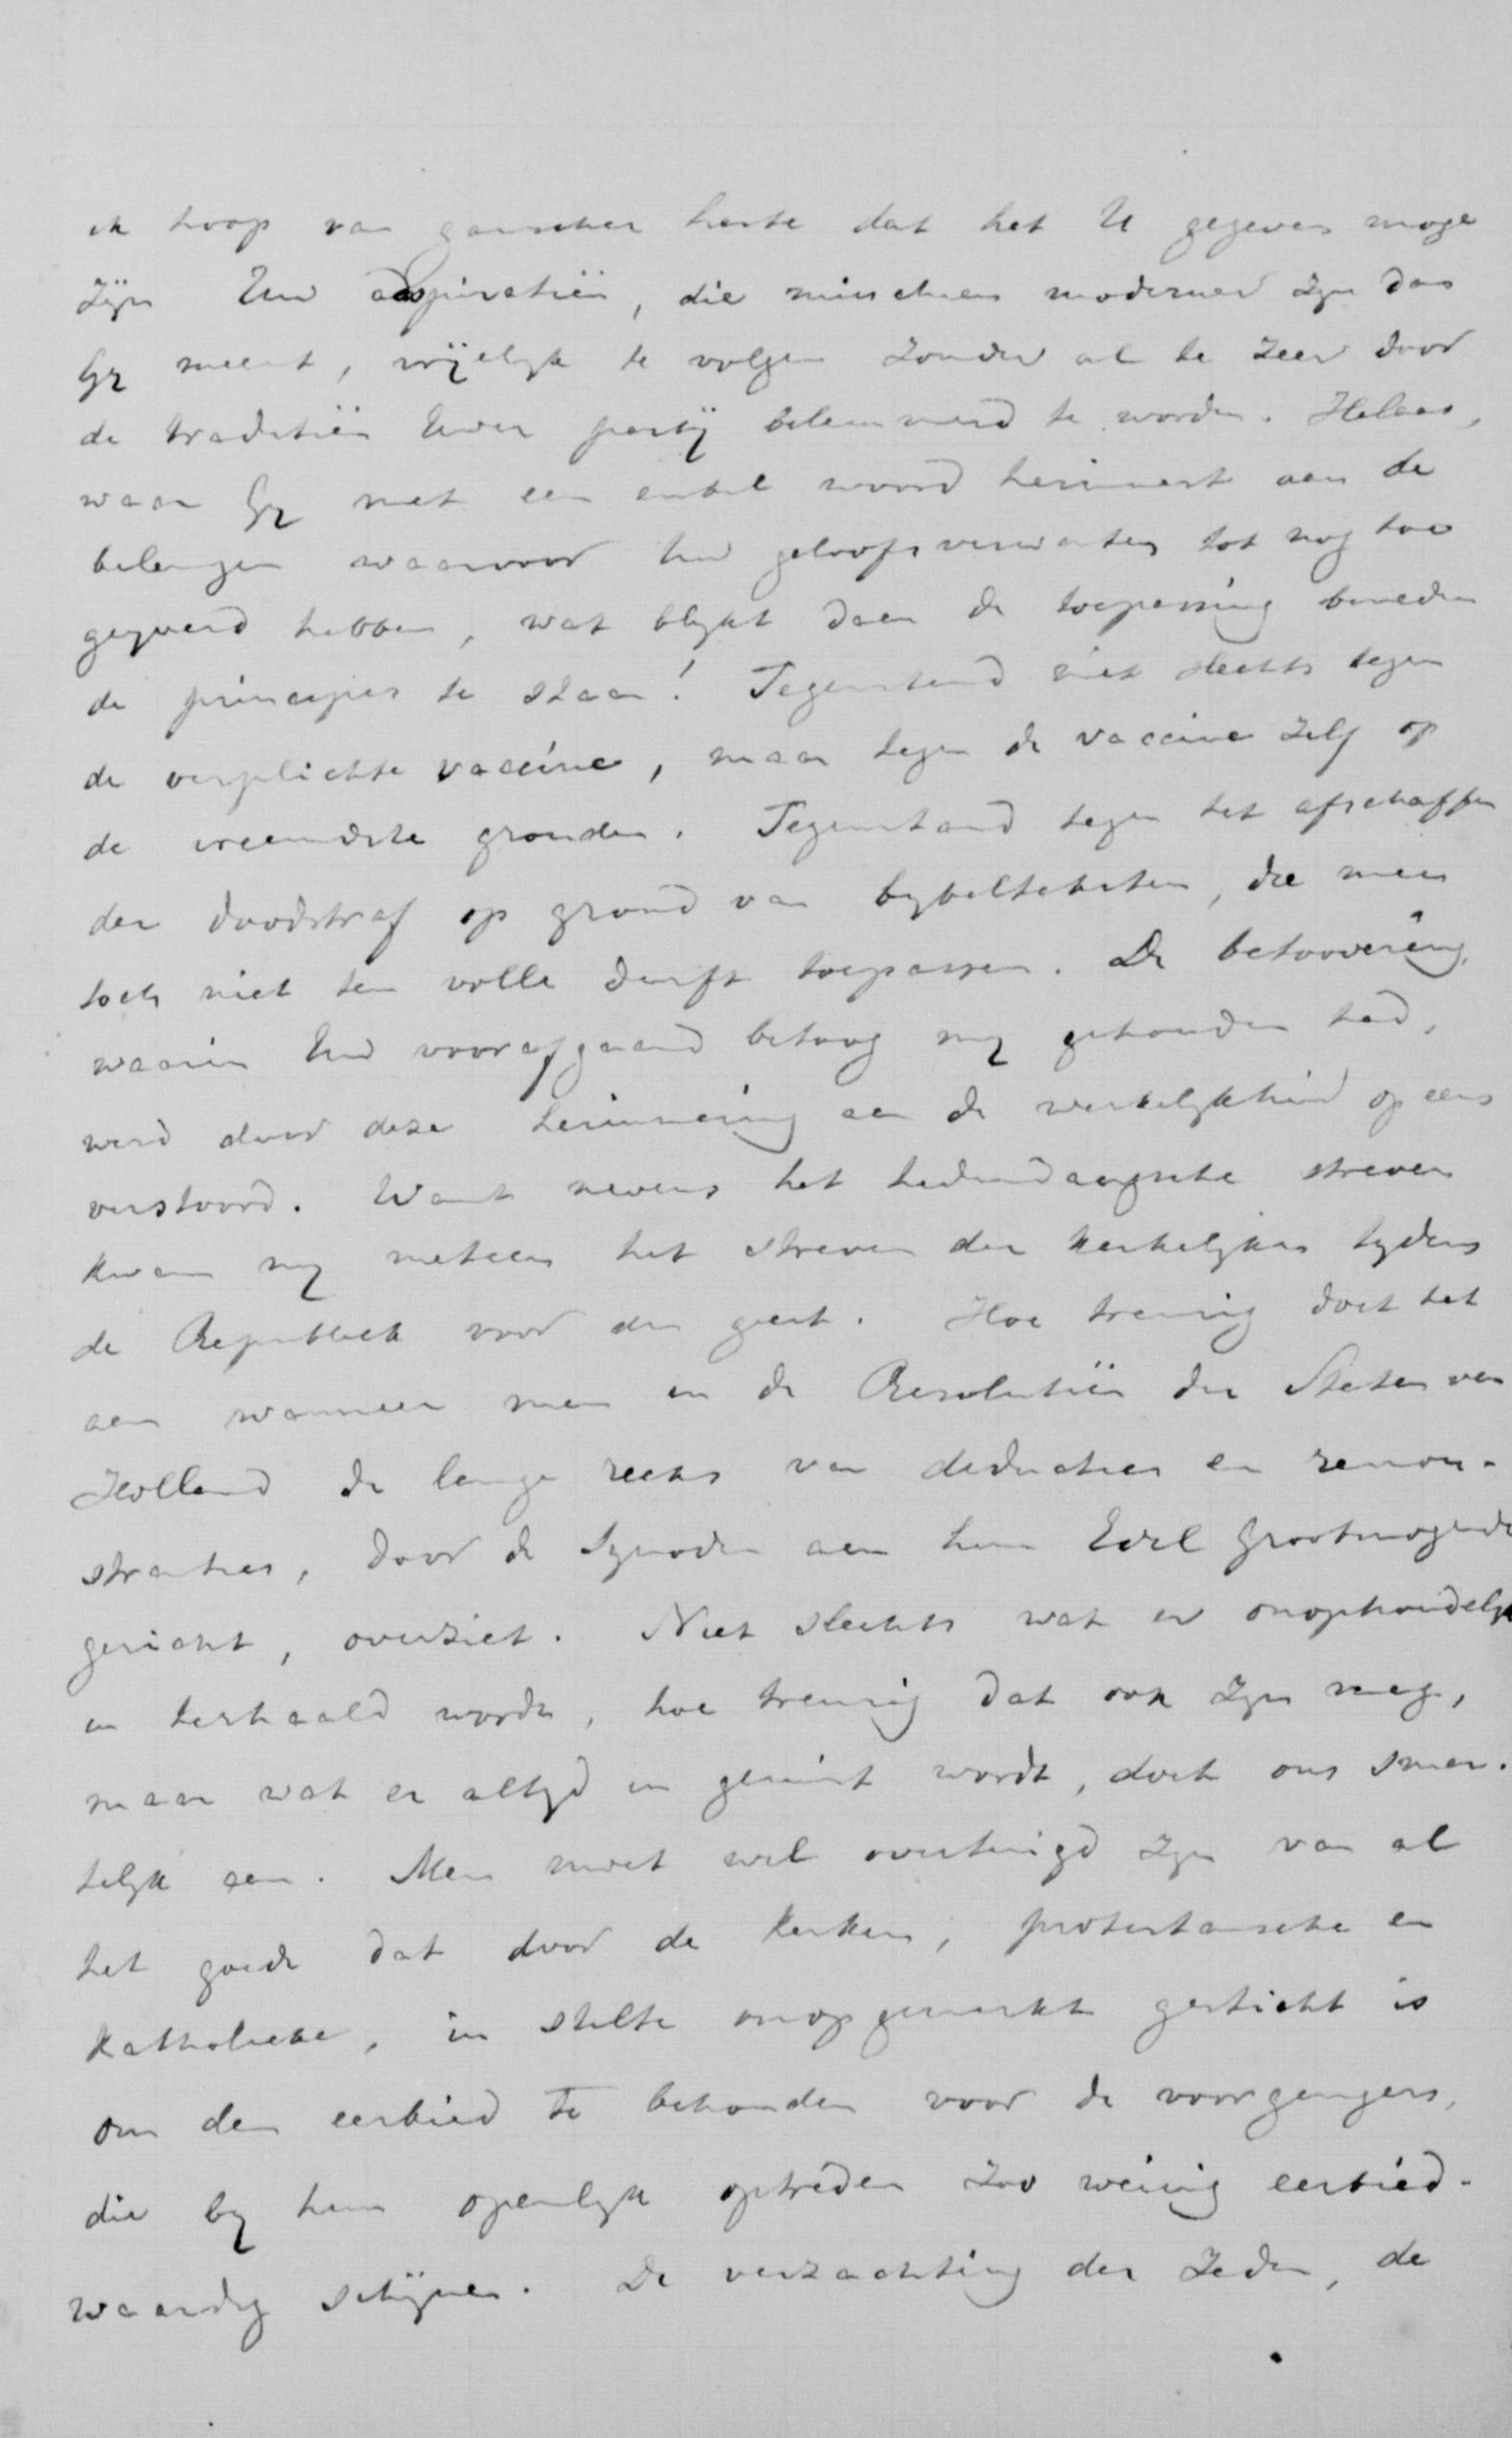 ik hoop van ganscher harte dat het U gegeven moge
zijn Uw adspiratiën, die misschien moderner zyn dan
Gy meent, vrijelyk te volgen zonder al te zeer door
de traditiën Uwer partij belemmerd te worden. Helaas,
waar Gy met een enkel woord herinnert aan de
belangen waarvoor Uw geloofsverwanten tot nog toe
geyverd hebben, wat blykt daar de toepassing beneden
de principes te staan! Tegenstand niet slechts tegen
de verplichte vaccine, maar tegen de vaccine zelf op
de vreemdste gronden. Tegenstand tegen het afschaffen
der doodstraf op grond van bybelteksten, die men
toch niet ten volle durft toepassen. De betoovering,
waarin Uw voorafgaand betoog my gehouden had,
werd door deze herinnering aan de werkelykheid opeens
verstoord. Want nevens het hedendaagsche streven
kwam my meteen het streven der kerkelyken tydens
de Republiek voor den geest. Hoe treurig doet het
aan wanneer men in de Resolutiën der Staten van
Holland de lange reeks van deducties en remon-
stranties, door de Synoden aan hun Edel Grootmogende
gericht, overziet. Niet slechts wat er onophoudelyk
in herhaald wordt, hoe treurig dat ook zyn mag,
maar wat er altyd in gemist wordt, doet ons smar-
telyk aan. Men moet wel overtuigd zyn van al
het goede dat door de kerken, protestansche en
katholieke, in stilte onopgemerkt gesticht is
om den eerbied te behouden voor de voorgangers,
die by hun openlyk optreden zoo weinig eerbied-
waardig schijnen. De verzachting der zeden, de